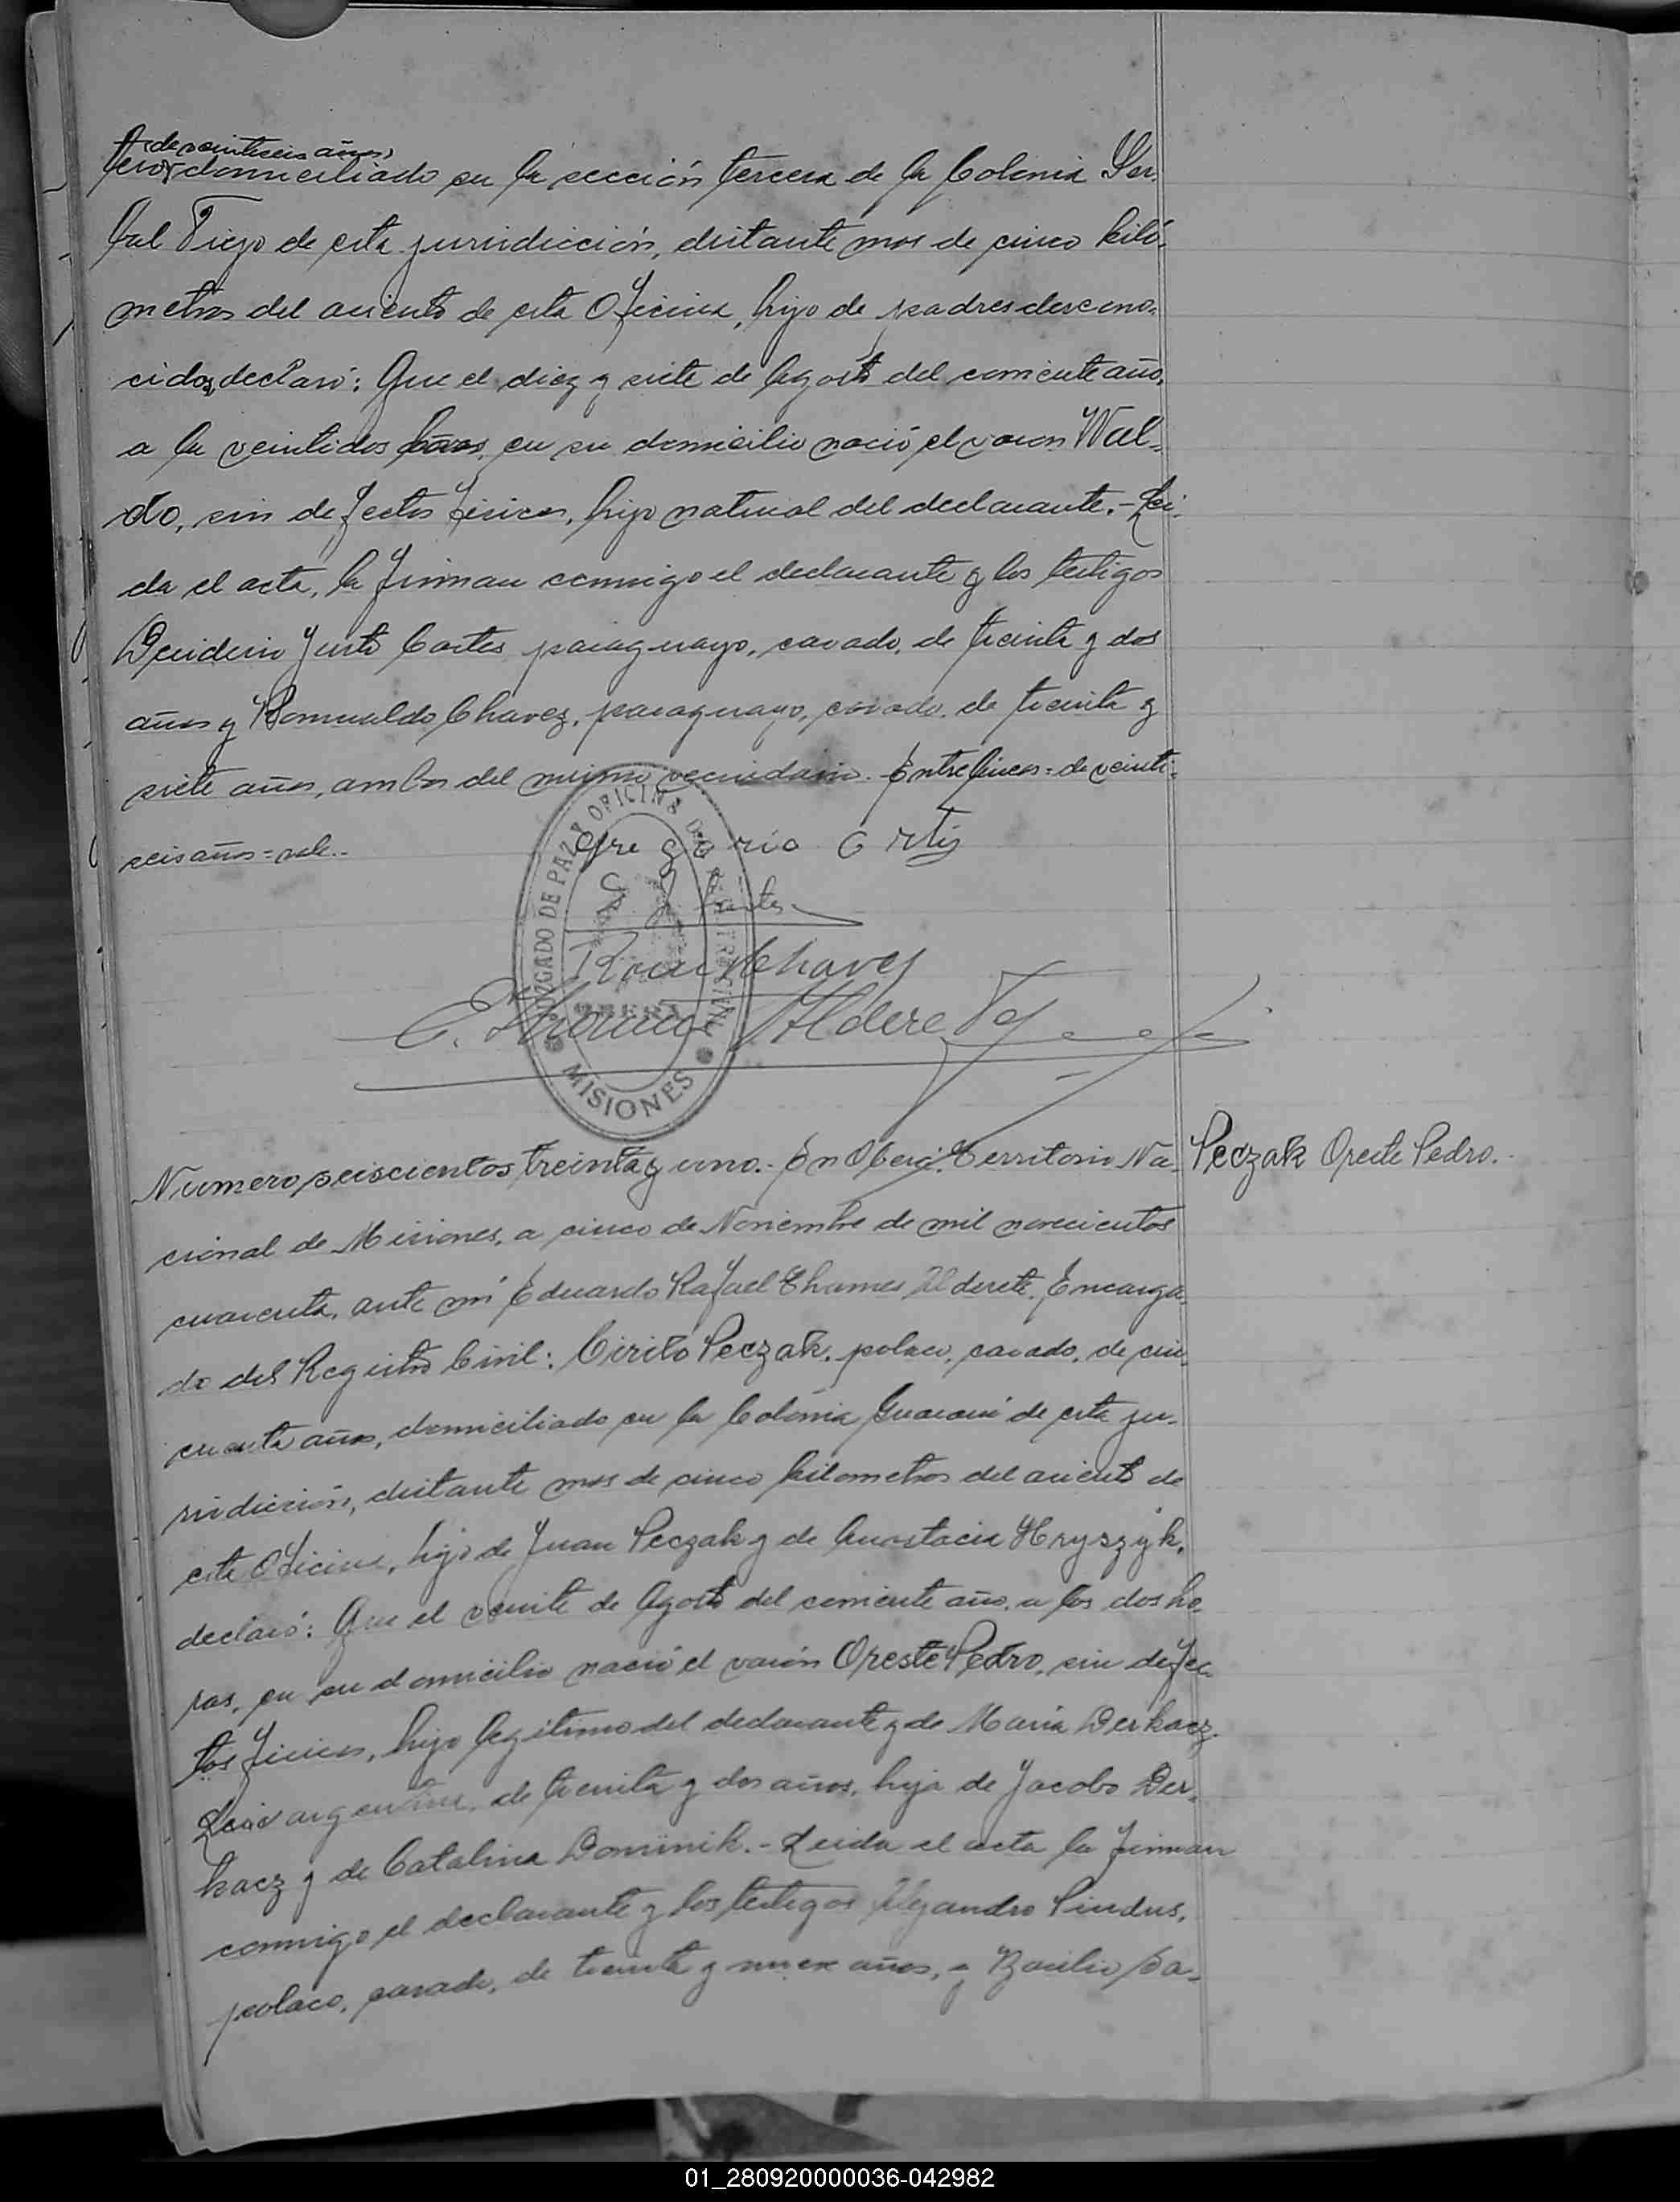 de veintiseis años,
tero, domiciliado en la sección tercera de la Colonia Yer-
bal Viejo de esta jurisdicción, distante mas de cinco kiló-
metros del asiento de esta Oficina, hijo de padres descono-
cidos, declaró: Que el diez y siete de Agosto del corriente año,
a las veintidos horas, en su domicilio nació el varon Wal-
do, sin defectos físicos, hijo natural del declarante.- Leí-
da el acta, la firman conmigo el declarante y los testigos
Desiderio Justo Cortes, paraguayo, casado, de treinta y dos
años y Romualdo Chavez, paraguayo, casado, de treinta y
siete años, ambos del mismo vecindario. Entre lineas = de veinti-
seis años = vale.-
Gregorio Ortiz
Cortes
Rom Chavez
E. Thames Alderete
JUZGADO DE PAZ Y OFICINA DEL REGISTRO CIVIL
OBERÁ
MISIONES
Numero seiscientos treinta y uno.- En Oberá, Territorio Na-
Peczak Oreste Pedro.-
cional de Misiones, a cinco de Noviembre de mil novecientos
cuarenta, ante mí Eduardo Rafael Thames Alderete, Encarga-
do del Registro Civil: Cirilo Peczak, polaco, casado, de cin-
cuenta años, domiciliado en la Colonia Guaraní de esta ju-
risdicción, distante mas de cinco kilometros del asiento de
esta Oficina, hijo de Juan Peczak y de Anastacia Hryszyk,
declaró: Que el veinte de Agosto del corriente año, a las dos ho-
ras, en su domicilio nació el varón Oreste Pedro, sin defec-
tos físicos, hijo legítimo del declarante y de María Derkacz,
argentina, de treinta y dos años, hija de Jacobo Der-
kacz y de Catalina Dominik.- Leida el acta la firman
conmigo el declarante y los testigos Alejandro Pindus,
polaco, casado, de treinta y nueve años, y Basilio Sa-
01_280920000036-042982